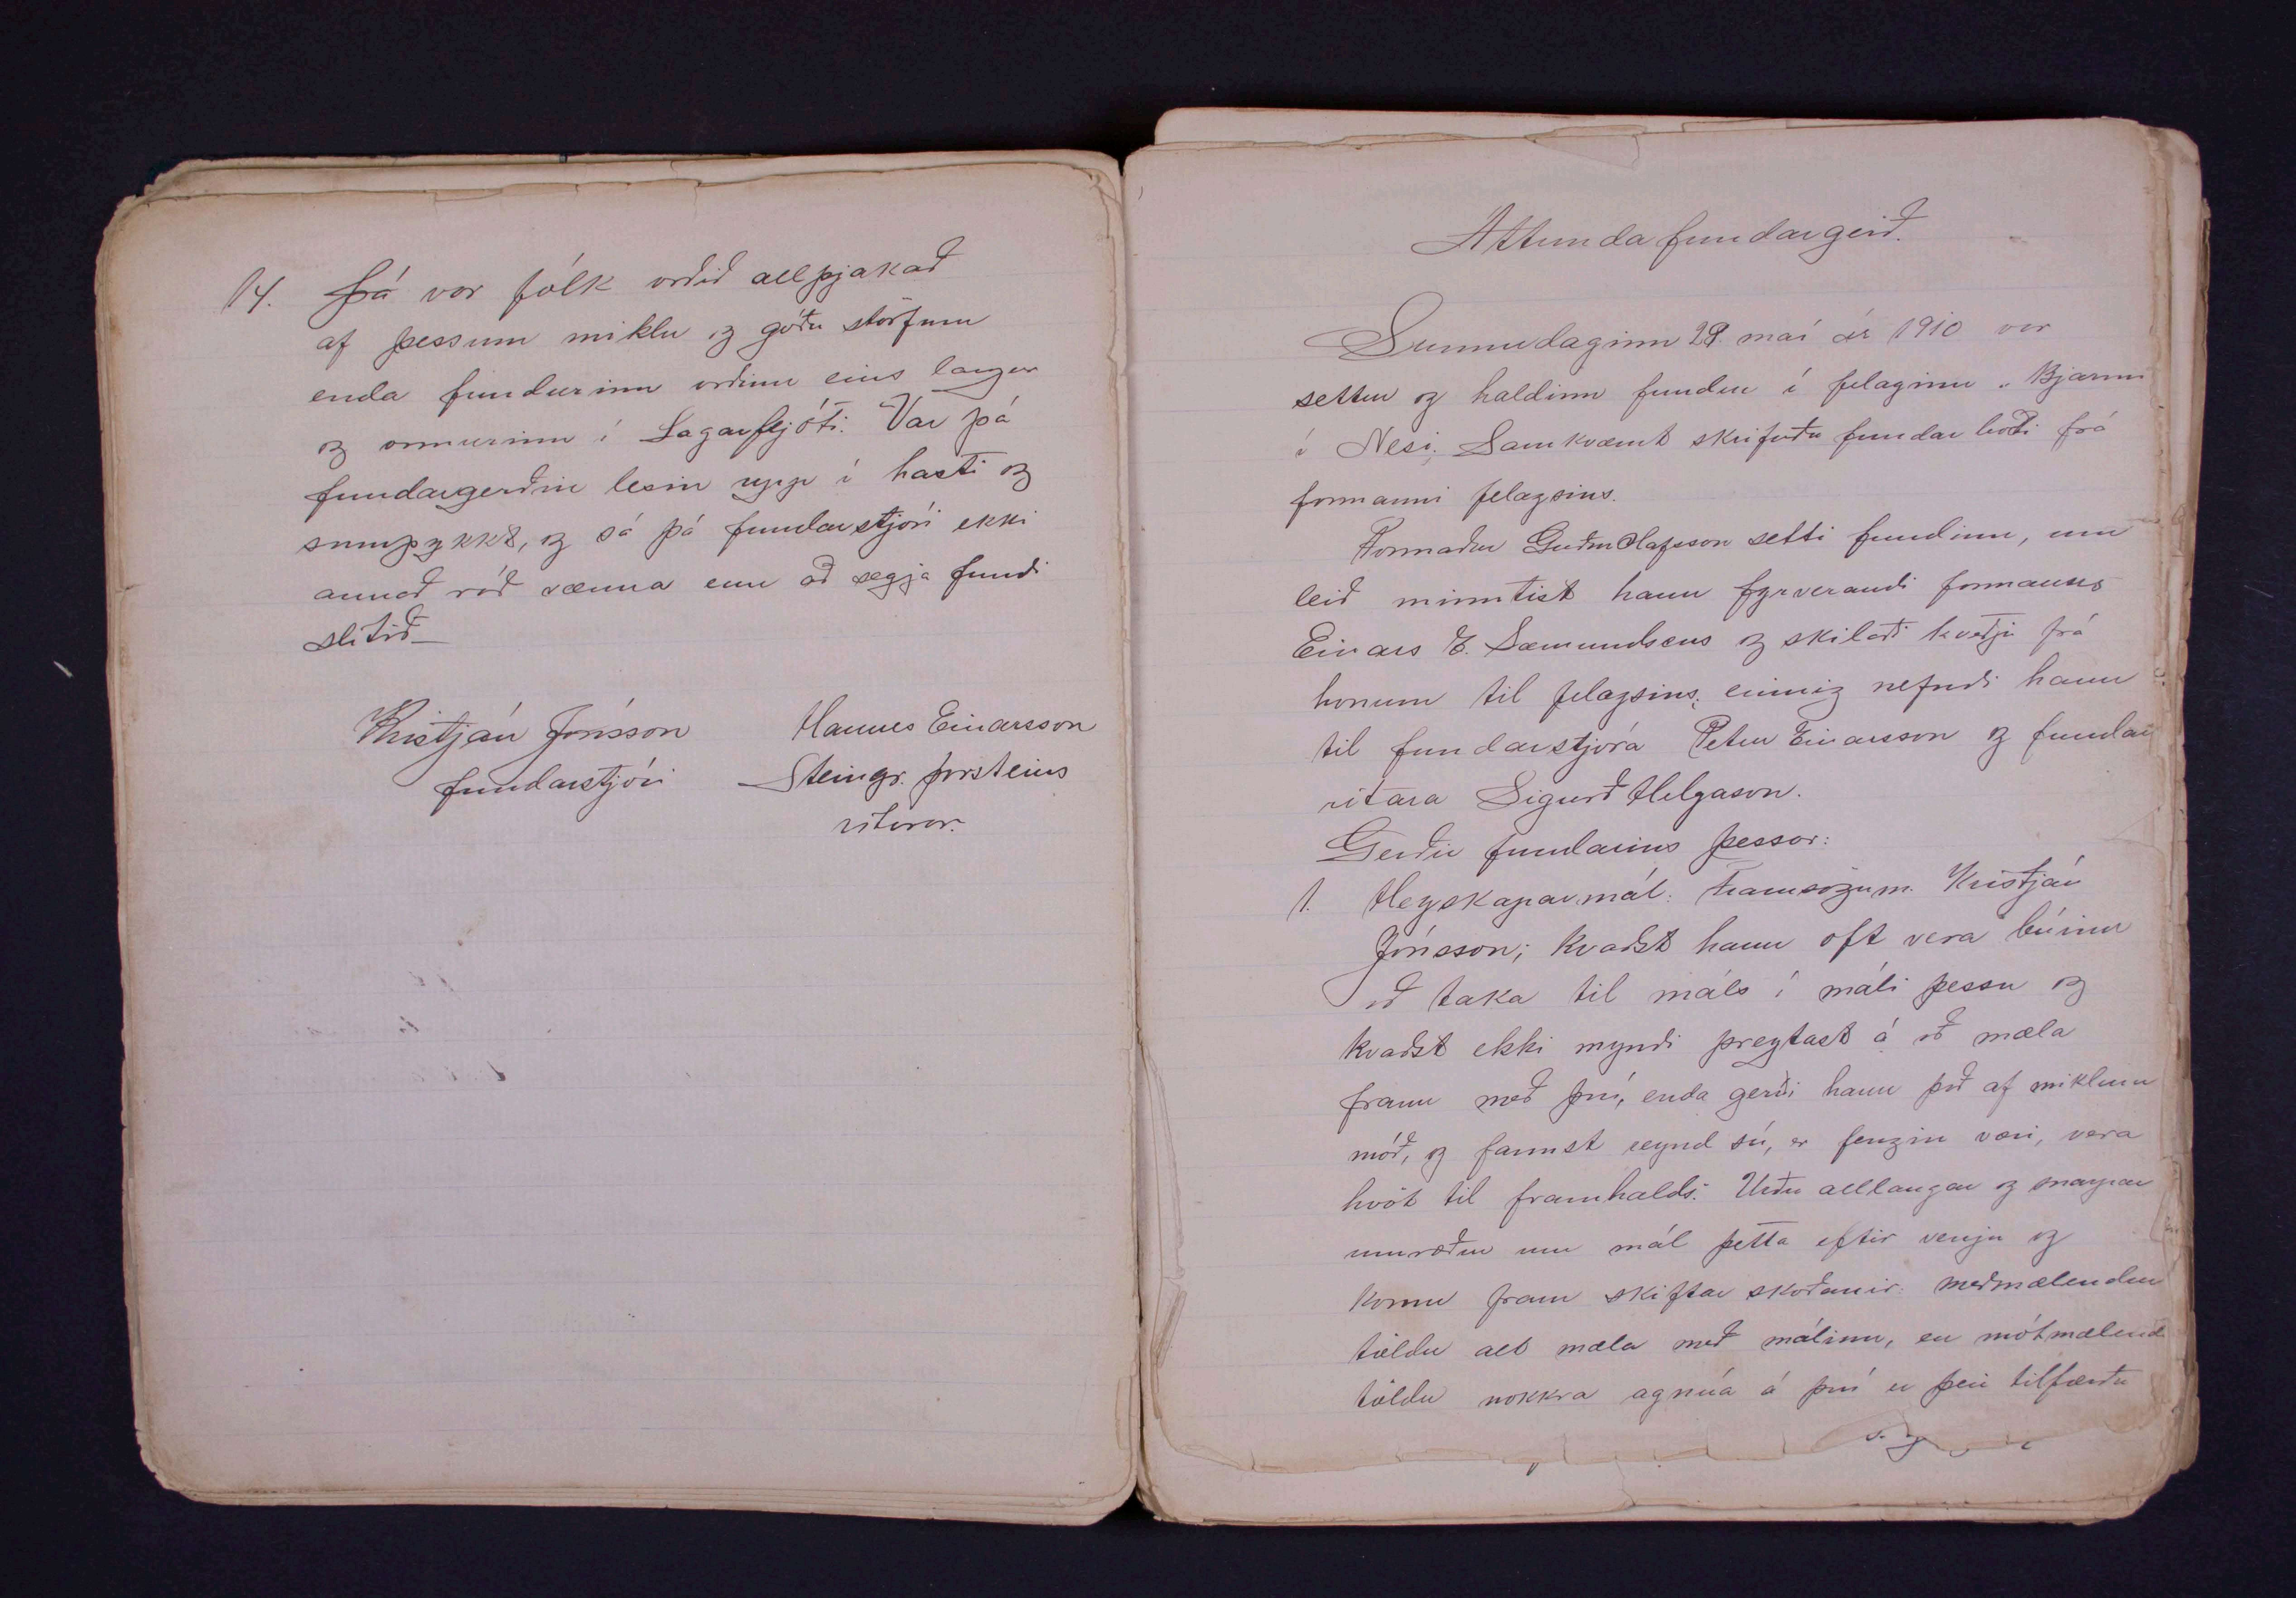 14. Þá var fólk orðið allþjakað
af þessum miklu og góðu störfum
enda fundurinn orðinn eins langur
og ormurinn í Lagarfljóti. Var þá
fundargerðin lesin upp í hasti og
samþykkt, og sá þá fundarstjóri ekki
annað ráð vænna enn að segja fundi
slitið_
Kristján Jónsson Hannes Einarsson
fundarstjóri Steingr. Þorsteins
ritarar.
Attunda fundargerð.
Sunnudaginn 29. maí ár 1910 var
settur og haldinn fundur í felaginu „Bjarmi
í Nesi; Samkvæmt skrifuðu fundar boði frá
formanni felagsins.
Formaður Guðm Olafsson setti fundinn, um
leið minntist hann fyrverandi formanns
Einars E. Sæmundsens og skilaði kveðju frá
honum til felagsins; einnig nefndi hann
til fundarstjóra Petur Einarsson og fundar
ritara Sigurð Helgason.
Gerðir fundarins þessar:
1. Heyskaparmál: Framsögum. Kristján
Jónsson; kvaðst hann oft vera búinn
að taka til máls í máli þessu og
kvaðst ekki myndi þreytast á að mæla
fram með því, enda gerði hann það af miklum
móð, og fannst reynd sú, er fengin væri, vera
hvöt til framhalds. Urðu alllangar og snarpar
umræður um mál þetta eftir venju og
komu fram skiftar skoðanir: meðmælendur
töldu alt mæla með málinu, en mótmælend
töldu nokkra agnúa á því er þeir tilfærðu